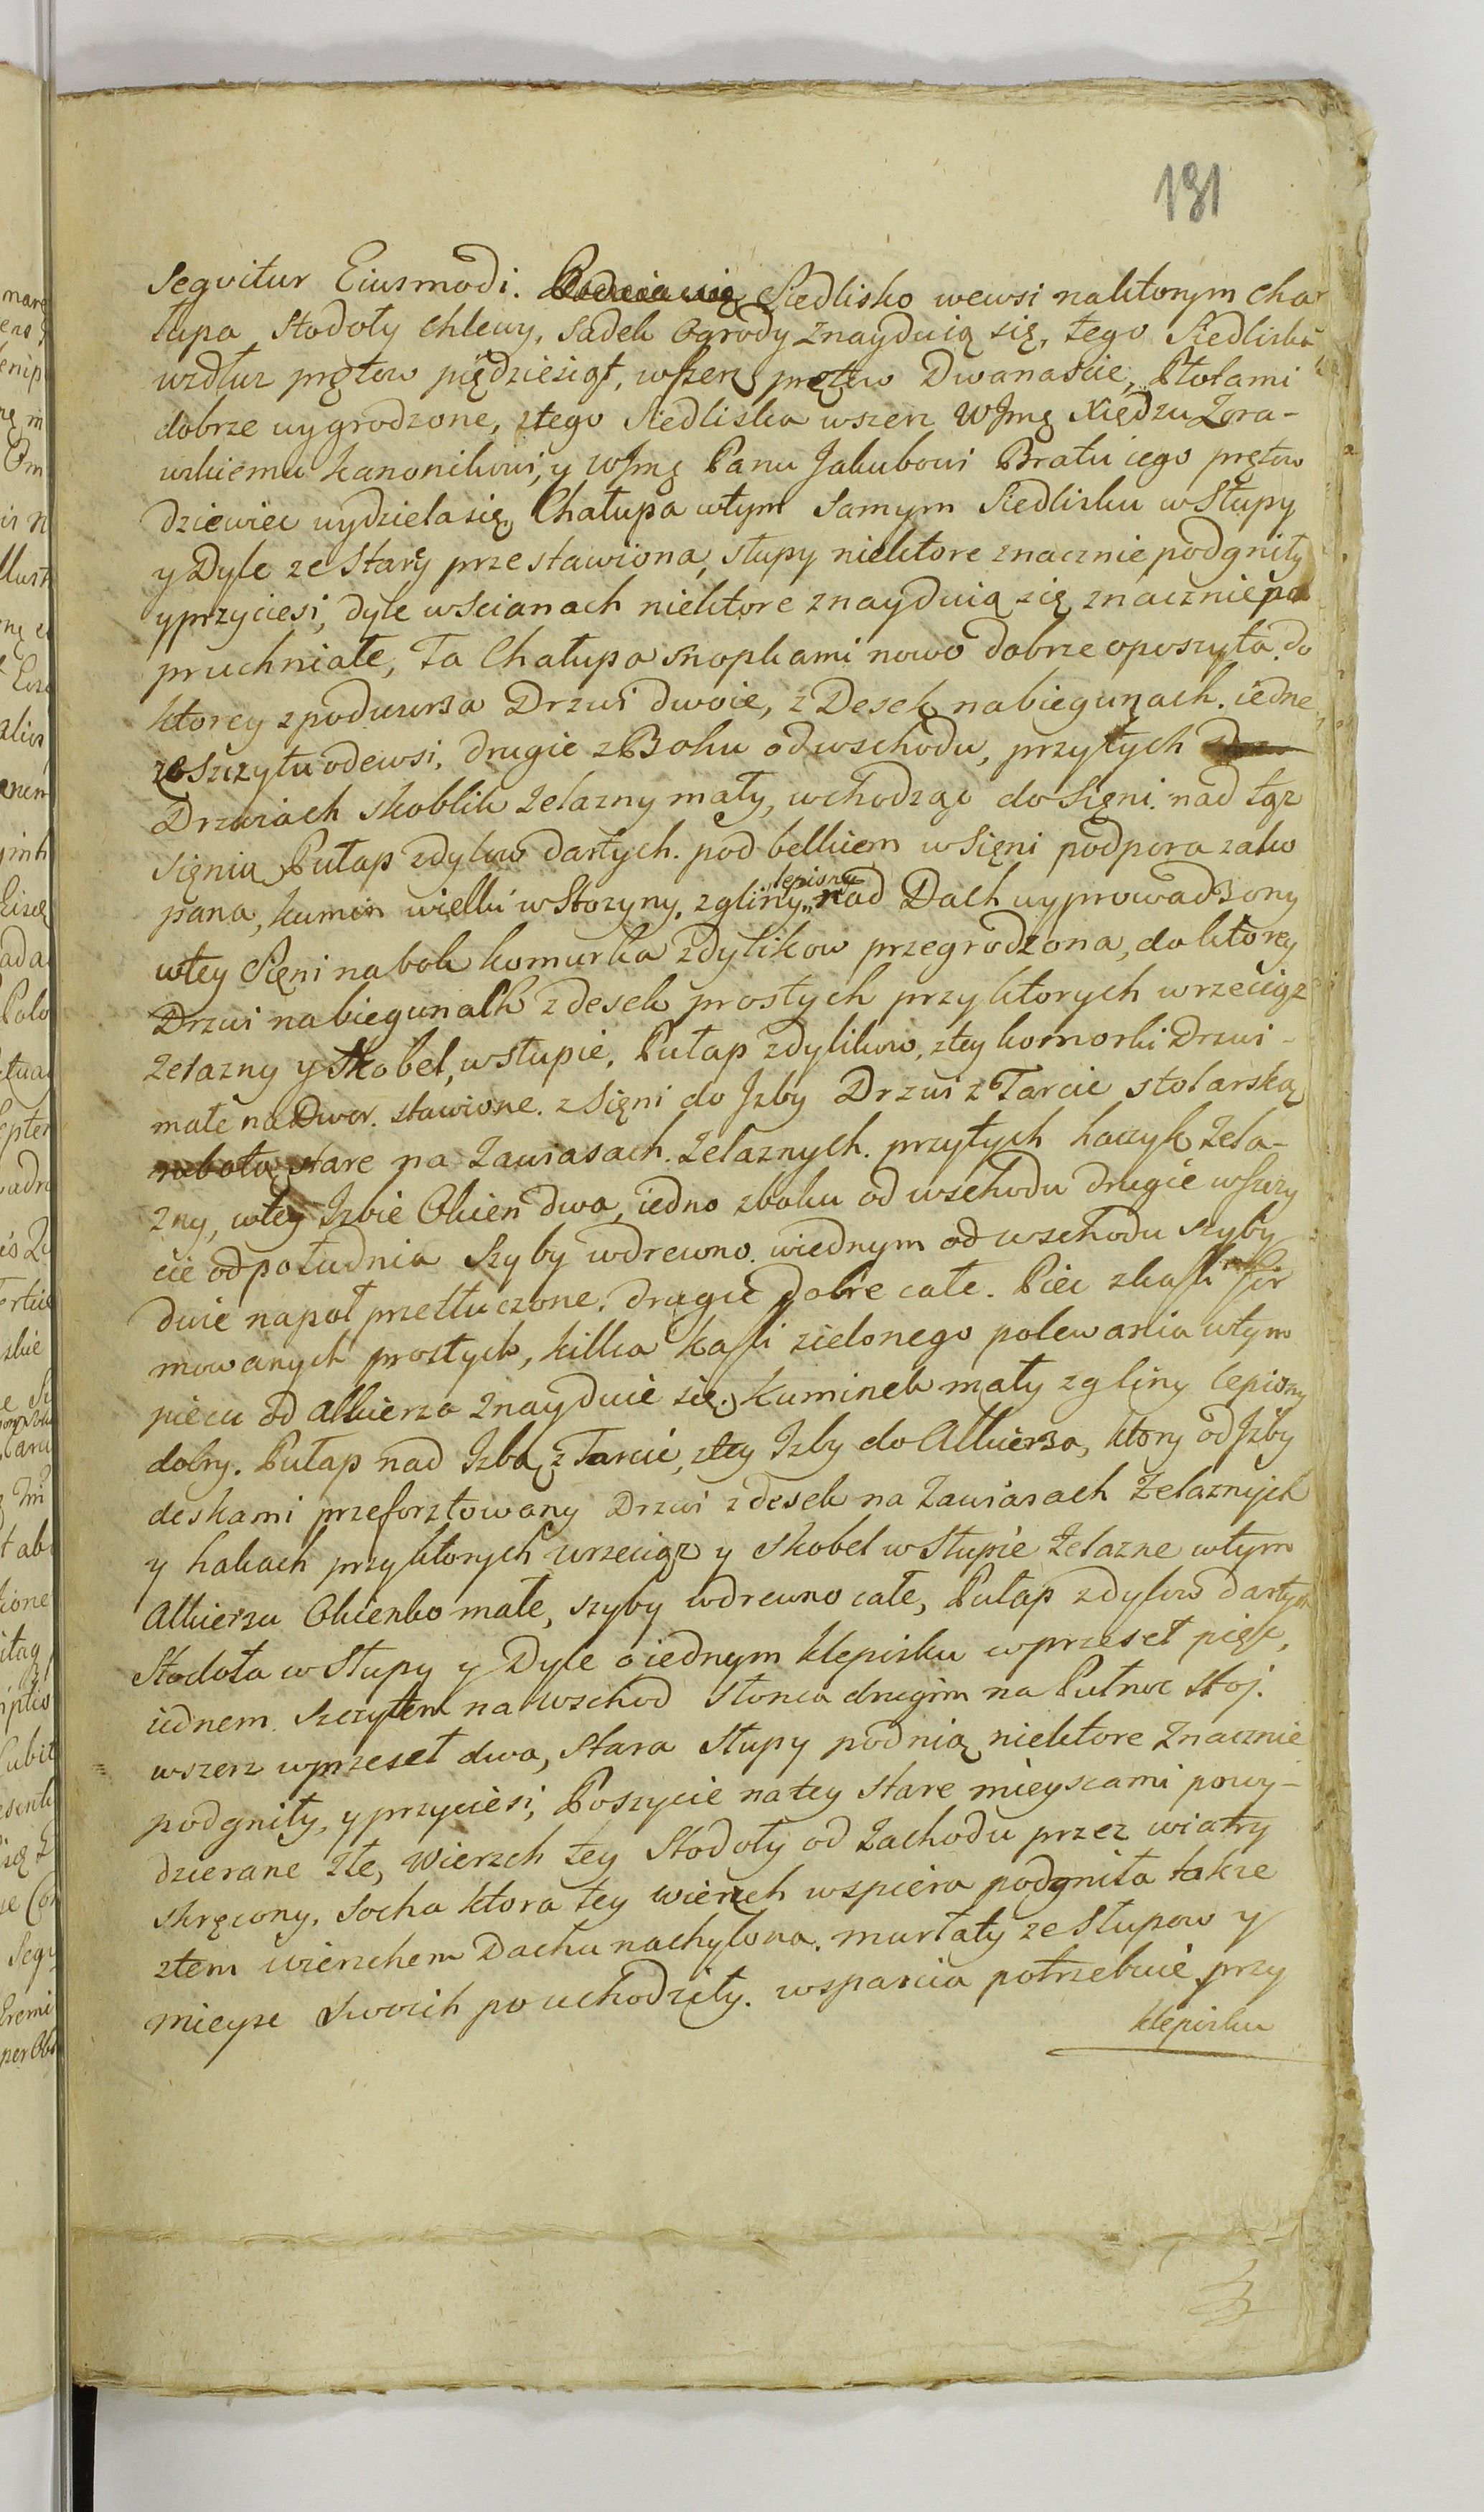 191
Seqvitur Eiusmodi. Siedlisko wewsi naktorym cha-
łupa Stodoły Chlewy, Sadek Ogrody znayduią się, tego Siedliska
wzdłuz prętow pięдziesiąt, wszerz prętow Dwanascie, Płotami
dobrze wygrodzone, ztego Siedliska wszerz WJmę Xiędzu Zora-
wskiemu kanonikowi, y WJmę Panu Jakubowi Bratu iego prętow
dziewiec wydziela się, Chałupa wtym samym Siedlisku w Słupy
y Dyle ze Starę przestawiona, słupy niektore znacznie podgniły
y przyciesi, dyle wscianach niektore znayduią się znacznie po
pruchniałe, Ta Chałupa snopkami nowo dobrze oposzyta. do
ktorey z poduurza Drzwi dwoie, z Desek na biegunach. iedne
ze Szczytu odewsi, drugie z Boku od wschodu, przy tych
Drzwiach skoblik zelazny mały, wchodząc do Sięni. nad tąz
Sięnią Pułap zdylow dartych. pod belkiem w Sięni podpora zako
pana, kumin wielki w Stozyny, z gliny lepiony nad Dach wyprowadzony
wtey Sięni na bok komurka zdylikow przegrodzona, do ktorey
Drzwi na biegunach z desek prostych przy ktorych wrzeciąz
Zelazny y Skobel, w słupie, Pułap zdylikow, ztey komorki Drzwi
małe na Dwor. stawione. z Sięni do Jzby Drzwi z Tarcic stolarską
robotą stare na Zawiasach Zelaznych. przytych haczyk Zela-
zny, wtey Izbie Okien dwa, iedno zboku od wschodu drugie w szczy
cie od południa Szyby wdrewno. wiednym od wschodu szyby
dwie napoł przetłuczone. drugie dobre całe. Piec z kafli for
mowanych prostych, kilka kafli zielonego polewania wtym
piecu od alkierza znayduie się. kuminek mały z gliny lepiony
dobry. Pułap nad Izbą z Tarcic, ztey Izby do Alkierza, ktory od Jzby
deskami przeforsztowany Drzwi z desek na Zawiasach Zelaznych
y hakach przy ktorych wrzeciąz y skobel w Słupie Zelazne wtym
Alkierzu Okienko małe, szyby wdrewno całe, Pułap zdylow dartych
Stodoła w Słupy y Dyle o iednym klepisku w przeseł pięć,
iednem Szczytem na wschod Słonca drugim na Pułnoc stoj.
wszerz w przeseł dwa, stara słupy pod nią niektore znacznie
podgniły, y przyciesi, Poszycie na tey stare mieyscami powy-
dzierane złe, wierzch tey Stodoły od Zachodu przez wiatry
skręcony, socha ktora tey wierzch wspiera podgniła takze
ztem wierzchem Dachu nachylona. murłaty ze słupow y
mieysc swoich pouchodziły. wsparcia potrzebuie, przy
klepisku